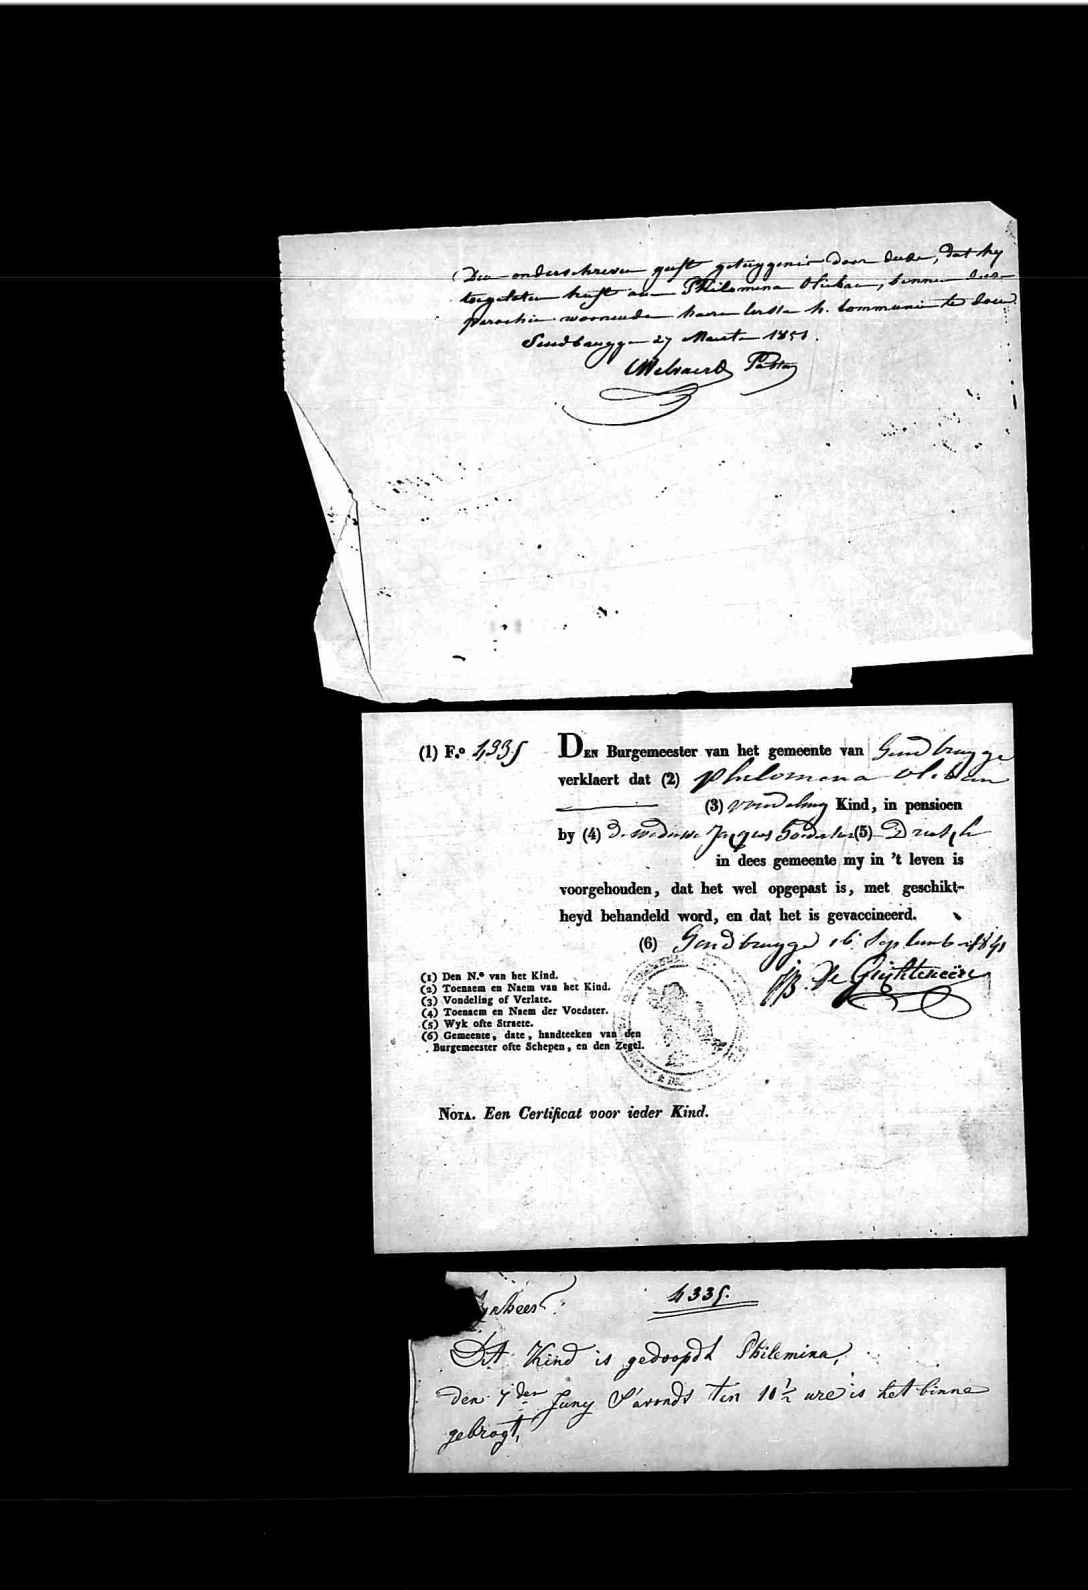 Den onderschreven geeft getuygenis door deése, dat hy
toegelaten heeft aen Philomena Oliban, binnen deese
parochie woonende haere eerste h. Communie te doen.
Gendbrugge 27 Maerte 1851.
Pastoor
(1) F.º 4335
DEN Burgemeester van het gemeente van Gendbrugge
verklaert dat (2) Philomena Oliban
(3) vondeling Kind, in pensioen
by (4) de weduwe Jacques (5)
in dees gemeente my in 't leven is
voorgehouden, dat het wel opgepast is, met geschikt-
heyd behandeld word, en dat het is gevaccineerd.
(6) Gendbrugge 16 September 1841
(1) Den N.º van het Kind.
(2) Toenaem en Naem van het Kind.
(3) Vondeling of Verlate.
(4) Toenaem en Naem der Voedster.
(5) Wyk ofte Straete.
(6) Gemeente, date, handteeken van den
Burgemeester ofte Schepen, en den Zegel.
NOTA. Een Certificat voor ieder Kind.
4335.
Dit Kind is gedoopdt Philemina,
den 7den Juny S'avonds ten 10 1/2 ure is het binne
gebragt,